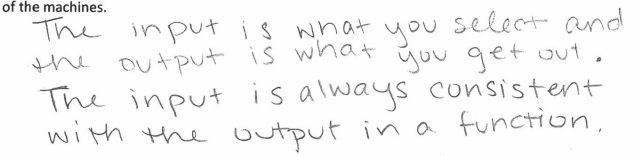 of the machines.
The input is what you select and
the output is what you get out.
The input is always consistent
with the output in a function.